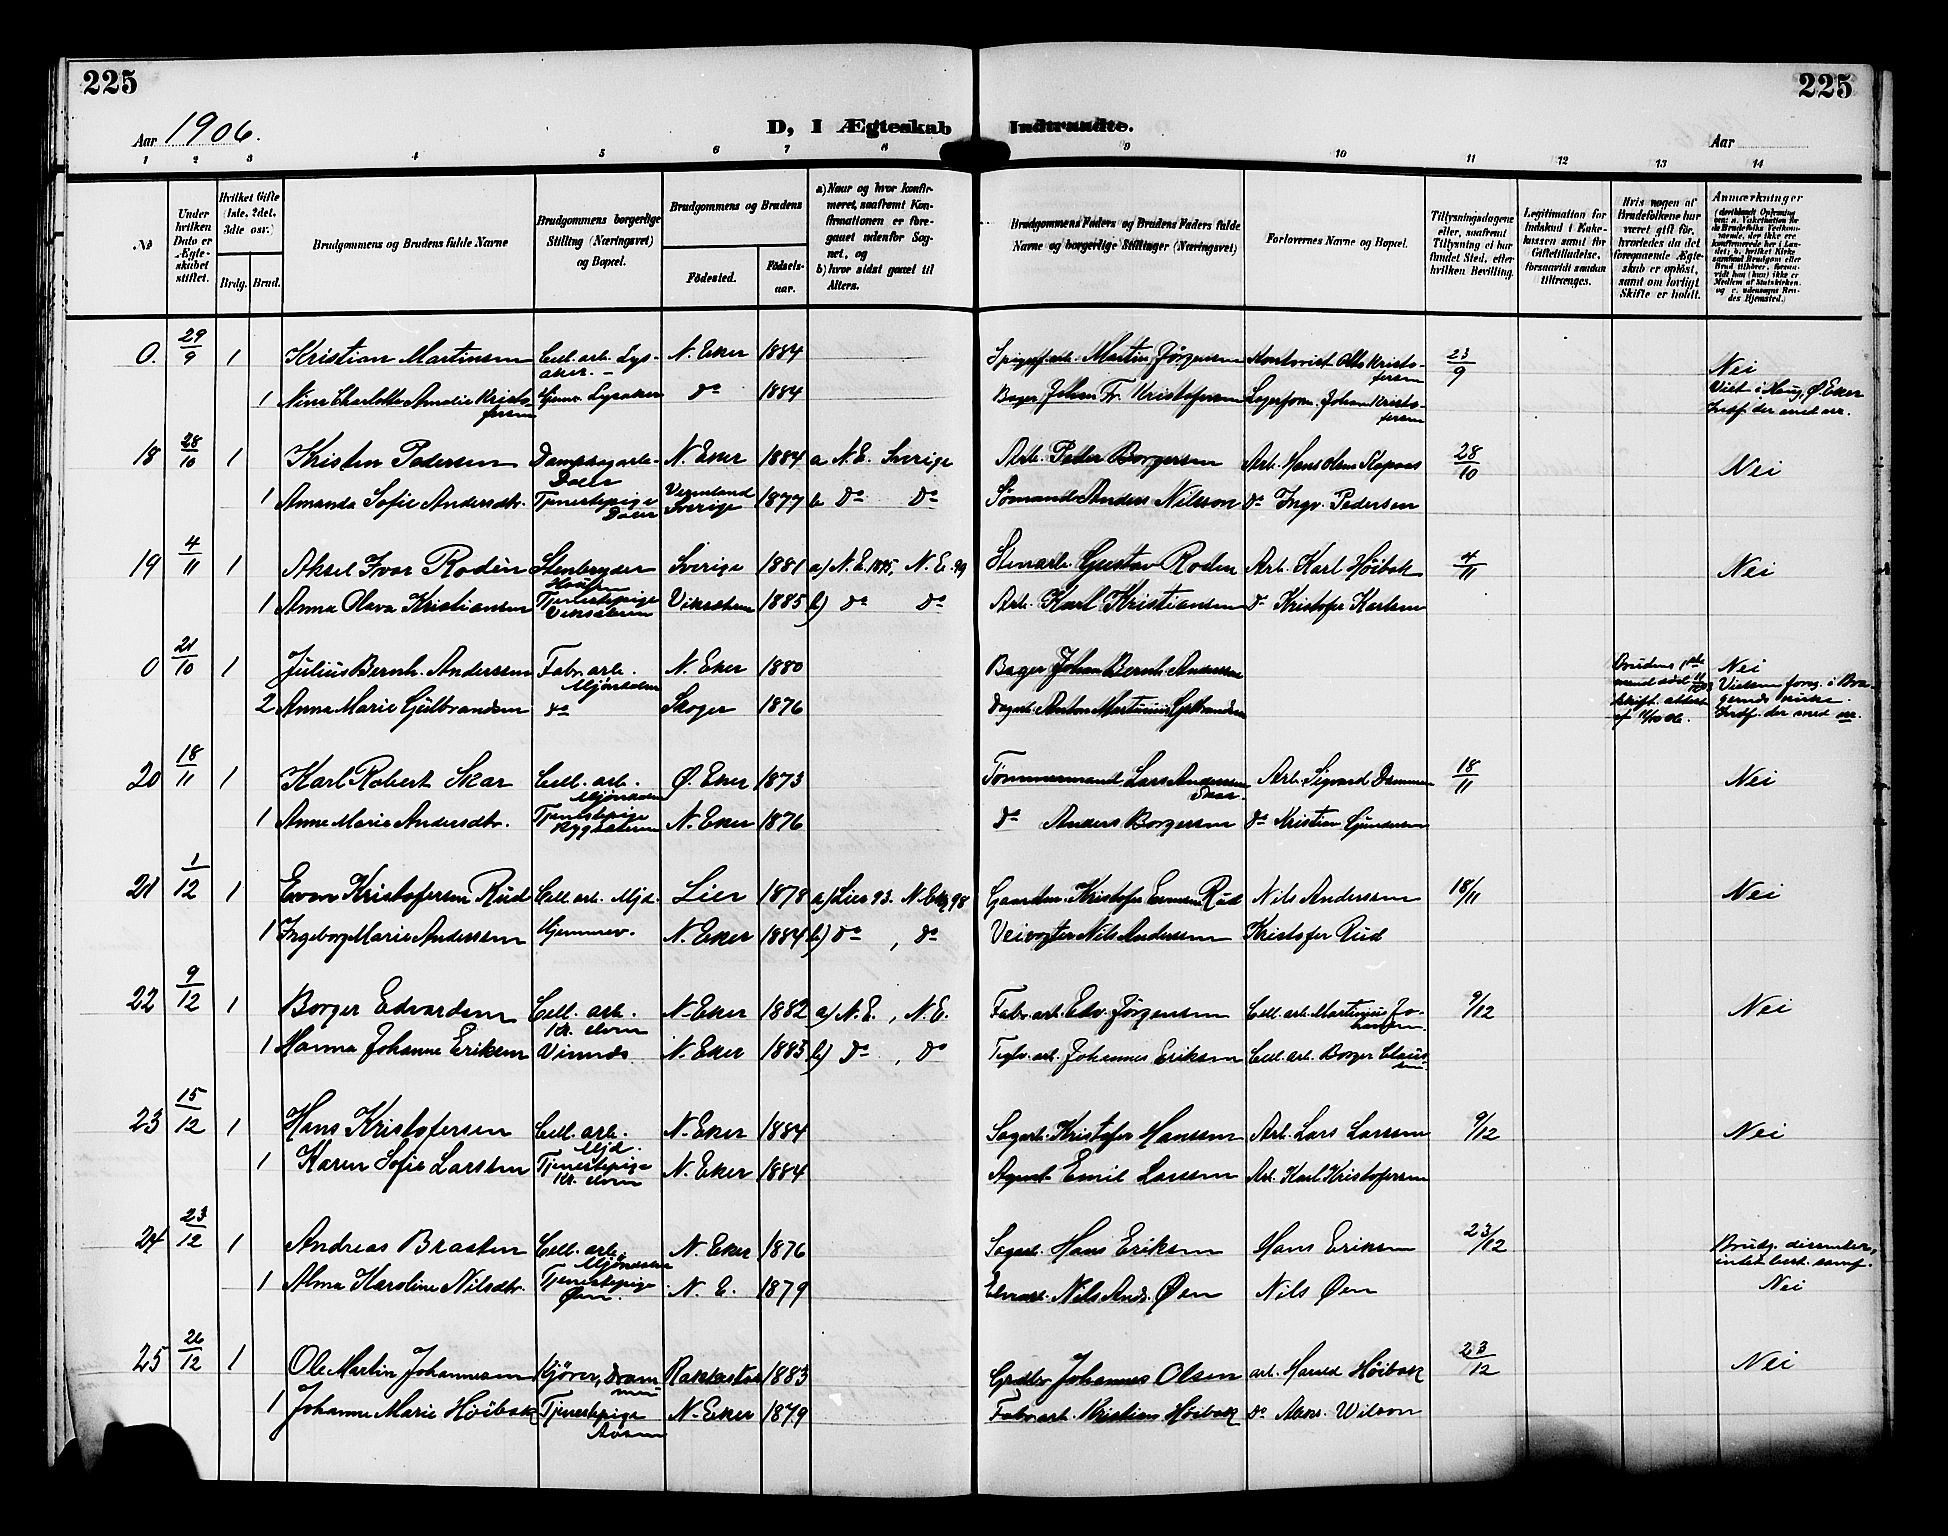 225
225
Aar 1906.
D, I Ægteskab Indtraadte.
Aar
1 2 3 4 5 6 7 8 9 10 11 12 13 14
№
Under hvilken Dato er Ægteskabet stiftet.
Hvilket Gifte (1ste, 2det, 3die osv.)
Brdg. Brud.
Brudgommens og Brudens fulde Navne
Brudgommens borgerlige Stilling (Næringsvei) og Bopæl.
Brudgommens og Brudens
Fødested.
Fødselsaar.
a) Naar og hvor konfirmeret, saafremt Konfirmationen er foregaaet udenfor Sognet, og
b) hvor sidst gaaet til Alters.
Brudgommens Faders og Brudens Faders fulde Navne og borgerlige Stillinger (Næringsvei)
Forlovernes Navne og Bopæl.
Tillysningsdagene eller, saafremt Tillysning ei har fundet Sted, efter hvilken Bevilling.
Legitimation for Indskud i Enkekassen samt for Giftetilladelse, forsaavidt saadan tiltrænges.
Hvis nogen af Brudefolkene har været gift før, hvorledes da det foregaaende Ægteskab er opløst, samt om lovligt Skifte er holdt.
Anmærkninger
0. 29/9 1 Kristian Martinsen Cell. arb. Lysaker. N. Eker 1884 Martin Jørgensen Kontorist Otto Kristofersen 23/9 Nei
1 Nina Charlotte Amalie Kristofersen Hjemv. Lysaker do 1884 Bager Johan Fr. Kristofersen Lagerform. Johan Kristofersen Viet i Haug, Ø. Eker
Indf. der med nr.
18 28/10 1 Kristen Pedersen Dampsagarb. N. Eker 1884 a N. E. Sverige Arb. Peder Borgersen Arb. Hans Olsen 28/10 Nei
1 Amanda Sofie Andersdtr. Tjenestepige Vermland Sverige 1877 b do do Sømand Anders Nilsson do Ingv. Pedersen
19 4/11 1 Aksel Ivar Rodèn Stenbryder Sverige 1881 a) N. E. 1895, N. E. 99 Stenarb. Gustav Roden Arb. Karl Høibak 4/11 Nei
1 Anna Olava Kristiansen Tjenestepige Vikesteen 1885 b) do do Arb. Karl Kristiansen do Kristofer Karlsen
0 21/10 1 Julius Bernh. Anderssen Fabr. arb. Mjøndalen N. Eker 1880 Bager Johan Bernh. Anderssen Brudens 1ste mand død Nei
2 Anna Marie Gulbrandsen do Skoger 1876 Dagarb. Anton Martinius Gulbrandsen Skift. attest af 11/10 06. Vielsen foreg. i Bragernæs kirke.
Indf. der med nr.
20 18/11 1 Karl Robert Skar Cell. arb. Mjøndalen Ø. Eker 1873 Tømmermand Lars Andersen Skar. Arb. Sigvard Dammen 18/11 Nei
1 Anne Marie Andersdtr. Tjenestepige N. Eker 1876 do Anders Borgersen do Kristian Gundersen
21 1/12 1 Evan Kristofersen Rud Cell. arb. Mjd. Lier 1878 a) Lier 93. N. Eker 98 Gaardm. Kristofer Evensen Rud Nils Anderssen 18/11 Nei
1 Ingeborg Marie Anderssen Hjemmev. N. Eker 1884 b) do, do Veivogter Nils Anderssen Kristofer Rud
22 9/12 1 Borger Edvardsen Cell. arb. N. Eker 1882 a) N. E., N. E. Fabr. arb. Edv. Jørgensen Cell. arb. Martinius Johansen 9/12 Nei
1 Hanna Johanne Eriksen Vinnes N. Eker 1883 b) do, do Teglv. arb. Johannes Eriksen Cell. arb. Borger Claussen
23 15/12 1 Hans Kristofersen Cell. arb. Mjd. N. Eker 1884 Sagarb. Kristofer Hanssen Arb. Lars Larssen 9/12 Nei
1 Karen Sofie Larssen Tjenestepige N. Eker 1884 Agent Emil Larssen Arb. Karl Kristofersen
24 23/12 1 Andreas Braaten Cell. arb. Mjøndalen N. Eker 1876 Sagarb. Hans Eriksen Hans Eriksen 23/12 Brudg. dissenter, intet best. samf.
1 Alma Karoline Nilsdtr. Tjenestepige Øen. N. E. 1879 Elvearb. Nils Ands. Øen Nils Øen Nei
25 26/12 1 Ole Martin Johannessen Kjører, Drammen Rakkestad 1883 Grdbr Johannes Olsen arb. Harald Høibak 23/12 Nei
1 Johanne Marie Høibak Tjenestepige Aasen N. Eker 1879 Fabr. arb. Kristian Høibak do Wilson